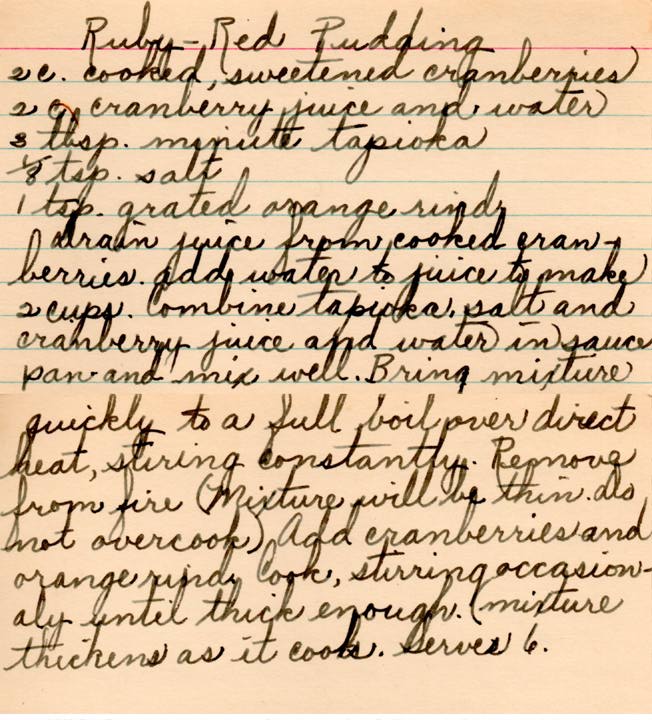 Ruby-Red Pudding
2 c. cooked, sweetened cranberries
2 c. cranberry juice and water
3 tbsp. minute tapioka
1/8 tsp. salt
1 tsp. grated orange rind
drain juice from cooked cran-
berries. add water to juice to make
2 cups. Combine tapioka, salt and
cranberry juice and water in sauce
pan and mix well. Bring mixture
quickly to a full boil over direct
heat, stiring constantly. Remove
from fire (Mixture will be thin. do
not overcook) Add cranberries and
orange rind, Cook, stirring occasion-
aly until thick enough. (mixture
thickens as it cools. Serves 6.